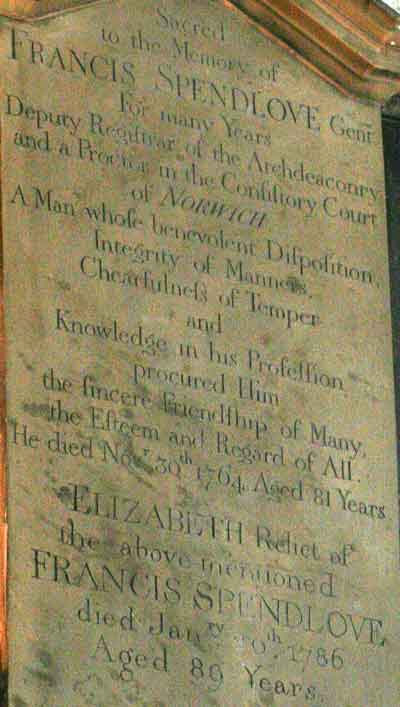 Sacred
to the Memory of
FRANCIS SPENDLOVE Genᵗ
For many Years
Deputy Regiſtrar of the Archdeaconry
and a Proctor in the Conſiſtory Court
of NORWICH
A Man whoſe benevolent Diſpoſition,
Integrity of Manners,
Chearfulneſs of Temper
and
Knowledge in his Profeſſion
procured Him
the ſincere Friendſhip of Many,
the Eſteem and Regard of All.
He died Novʳ 30ᵗʰ 1764. Aged 81 Years
ELIZABETH Relict of
the above mentioned
FRANCIS SPENDLOVE
died Janʳʸ 20ᵗʰ 1786
Aged 89 Years.